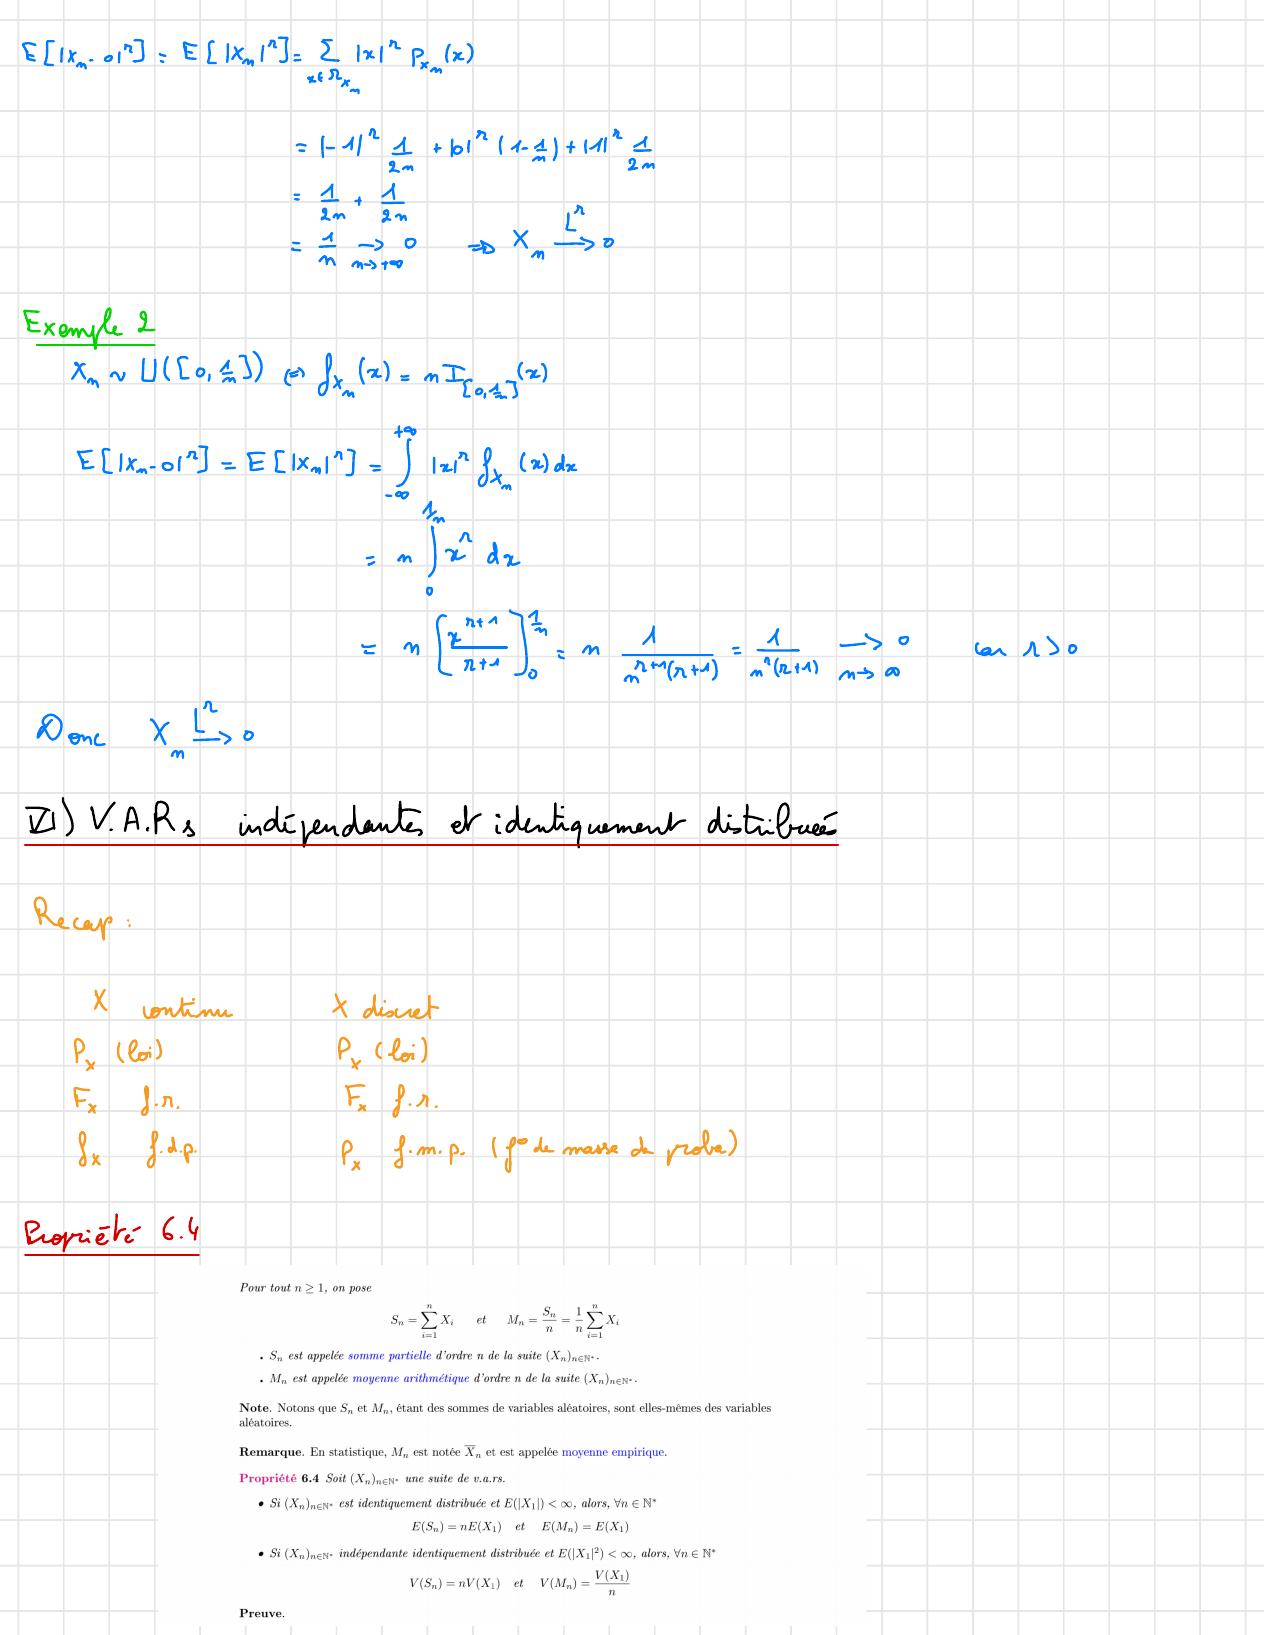 E[|Xₙ - 0|ʳ] = E[|Xₙ|ʳ] = ∑_{x∈Ω_{Xₙ}} |x|ʳ P_{Xₙ}(x)
= |-1|ʳ 1/2n + |0|ʳ (1 - 1/n) + |1|ʳ 1/2n
= 1/2n + 1/2n
= 1/n →_{n→+∞} 0 ⇒ Xₙ →^{Lʳ} 0
Exemple 2
Xₙ ~ U([0, 1/n]) ⇔ f_{Xₙ}(x) = n I_{[0, 1/n]}(x)
E[|Xₙ - 0|ʳ] = E[|Xₙ|ʳ] = ∫_{-∞}^{+∞} |x|ʳ f_{Xₙ}(x) dx
= n ∫_0^{1/n} xʳ dx
= n [x^{r+1}/(r+1)]_0^{1/n} = n 1/(n^{r+1}(r+1)) = 1/(nʳ(r+1)) →_{n→∞} 0 car r > 0
Donc Xₙ →^{Lʳ} 0
VI) V.A.Rs indépendantes et identiquement distribuées
Recap :
X continu X discret
P_X (loi) P_X (loi)
F_X f.r. F_X f.r.
f_X f.d.p. P_X f.m.p. (f° de masse de proba)
Propriété 6.4
Pour tout n ≥ 1, on pose
Sₙ = ∑_{i=1}^{n} Xᵢ et Mₙ = Sₙ/n = 1/n ∑_{i=1}^{n} Xᵢ
• Sₙ est appelée somme partielle d'ordre n de la suite (Xₙ)_{n∈ℕ*}.
• Mₙ est appelée moyenne arithmétique d'ordre n de la suite (Xₙ)_{n∈ℕ*}.
Note. Notons que Sₙ et Mₙ, étant des sommes de variables aléatoires, sont elles-mêmes des variables
aléatoires.
Remarque. En statistique, Mₙ est notée X̅ₙ et est appelée moyenne empirique.
Propriété 6.4 Soit (Xₙ)_{n∈ℕ*} une suite de v.a.rs.
• Si (Xₙ)_{n∈ℕ*} est identiquement distribuée et E(|X₁|) < ∞, alors, ∀n ∈ ℕ*
E(Sₙ) = nE(X₁) et E(Mₙ) = E(X₁)
• Si (Xₙ)_{n∈ℕ*} indépendante identiquement distribuée et E(|X₁|²) < ∞, alors, ∀n ∈ ℕ*
V(Sₙ) = nV(X₁) et V(Mₙ) = V(X₁)/n
Preuve.